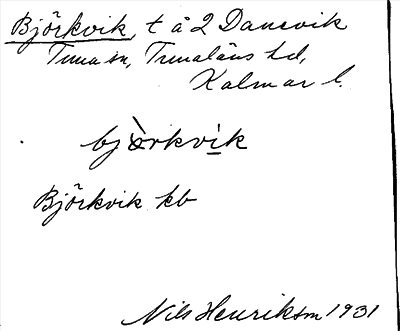 Björkvik, t å 2 Dansvik
Tuna sn, Tunaläns hd,
Kalmar l.
bjòrkvik
Björkvik kb
Nils Henrikson 1931